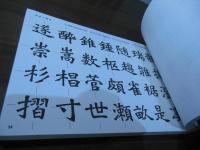 遂酔錐錘随瑞
崇嵩数枢趨雛
杉椙菅頗雀裾
摺寸世瀬畝是